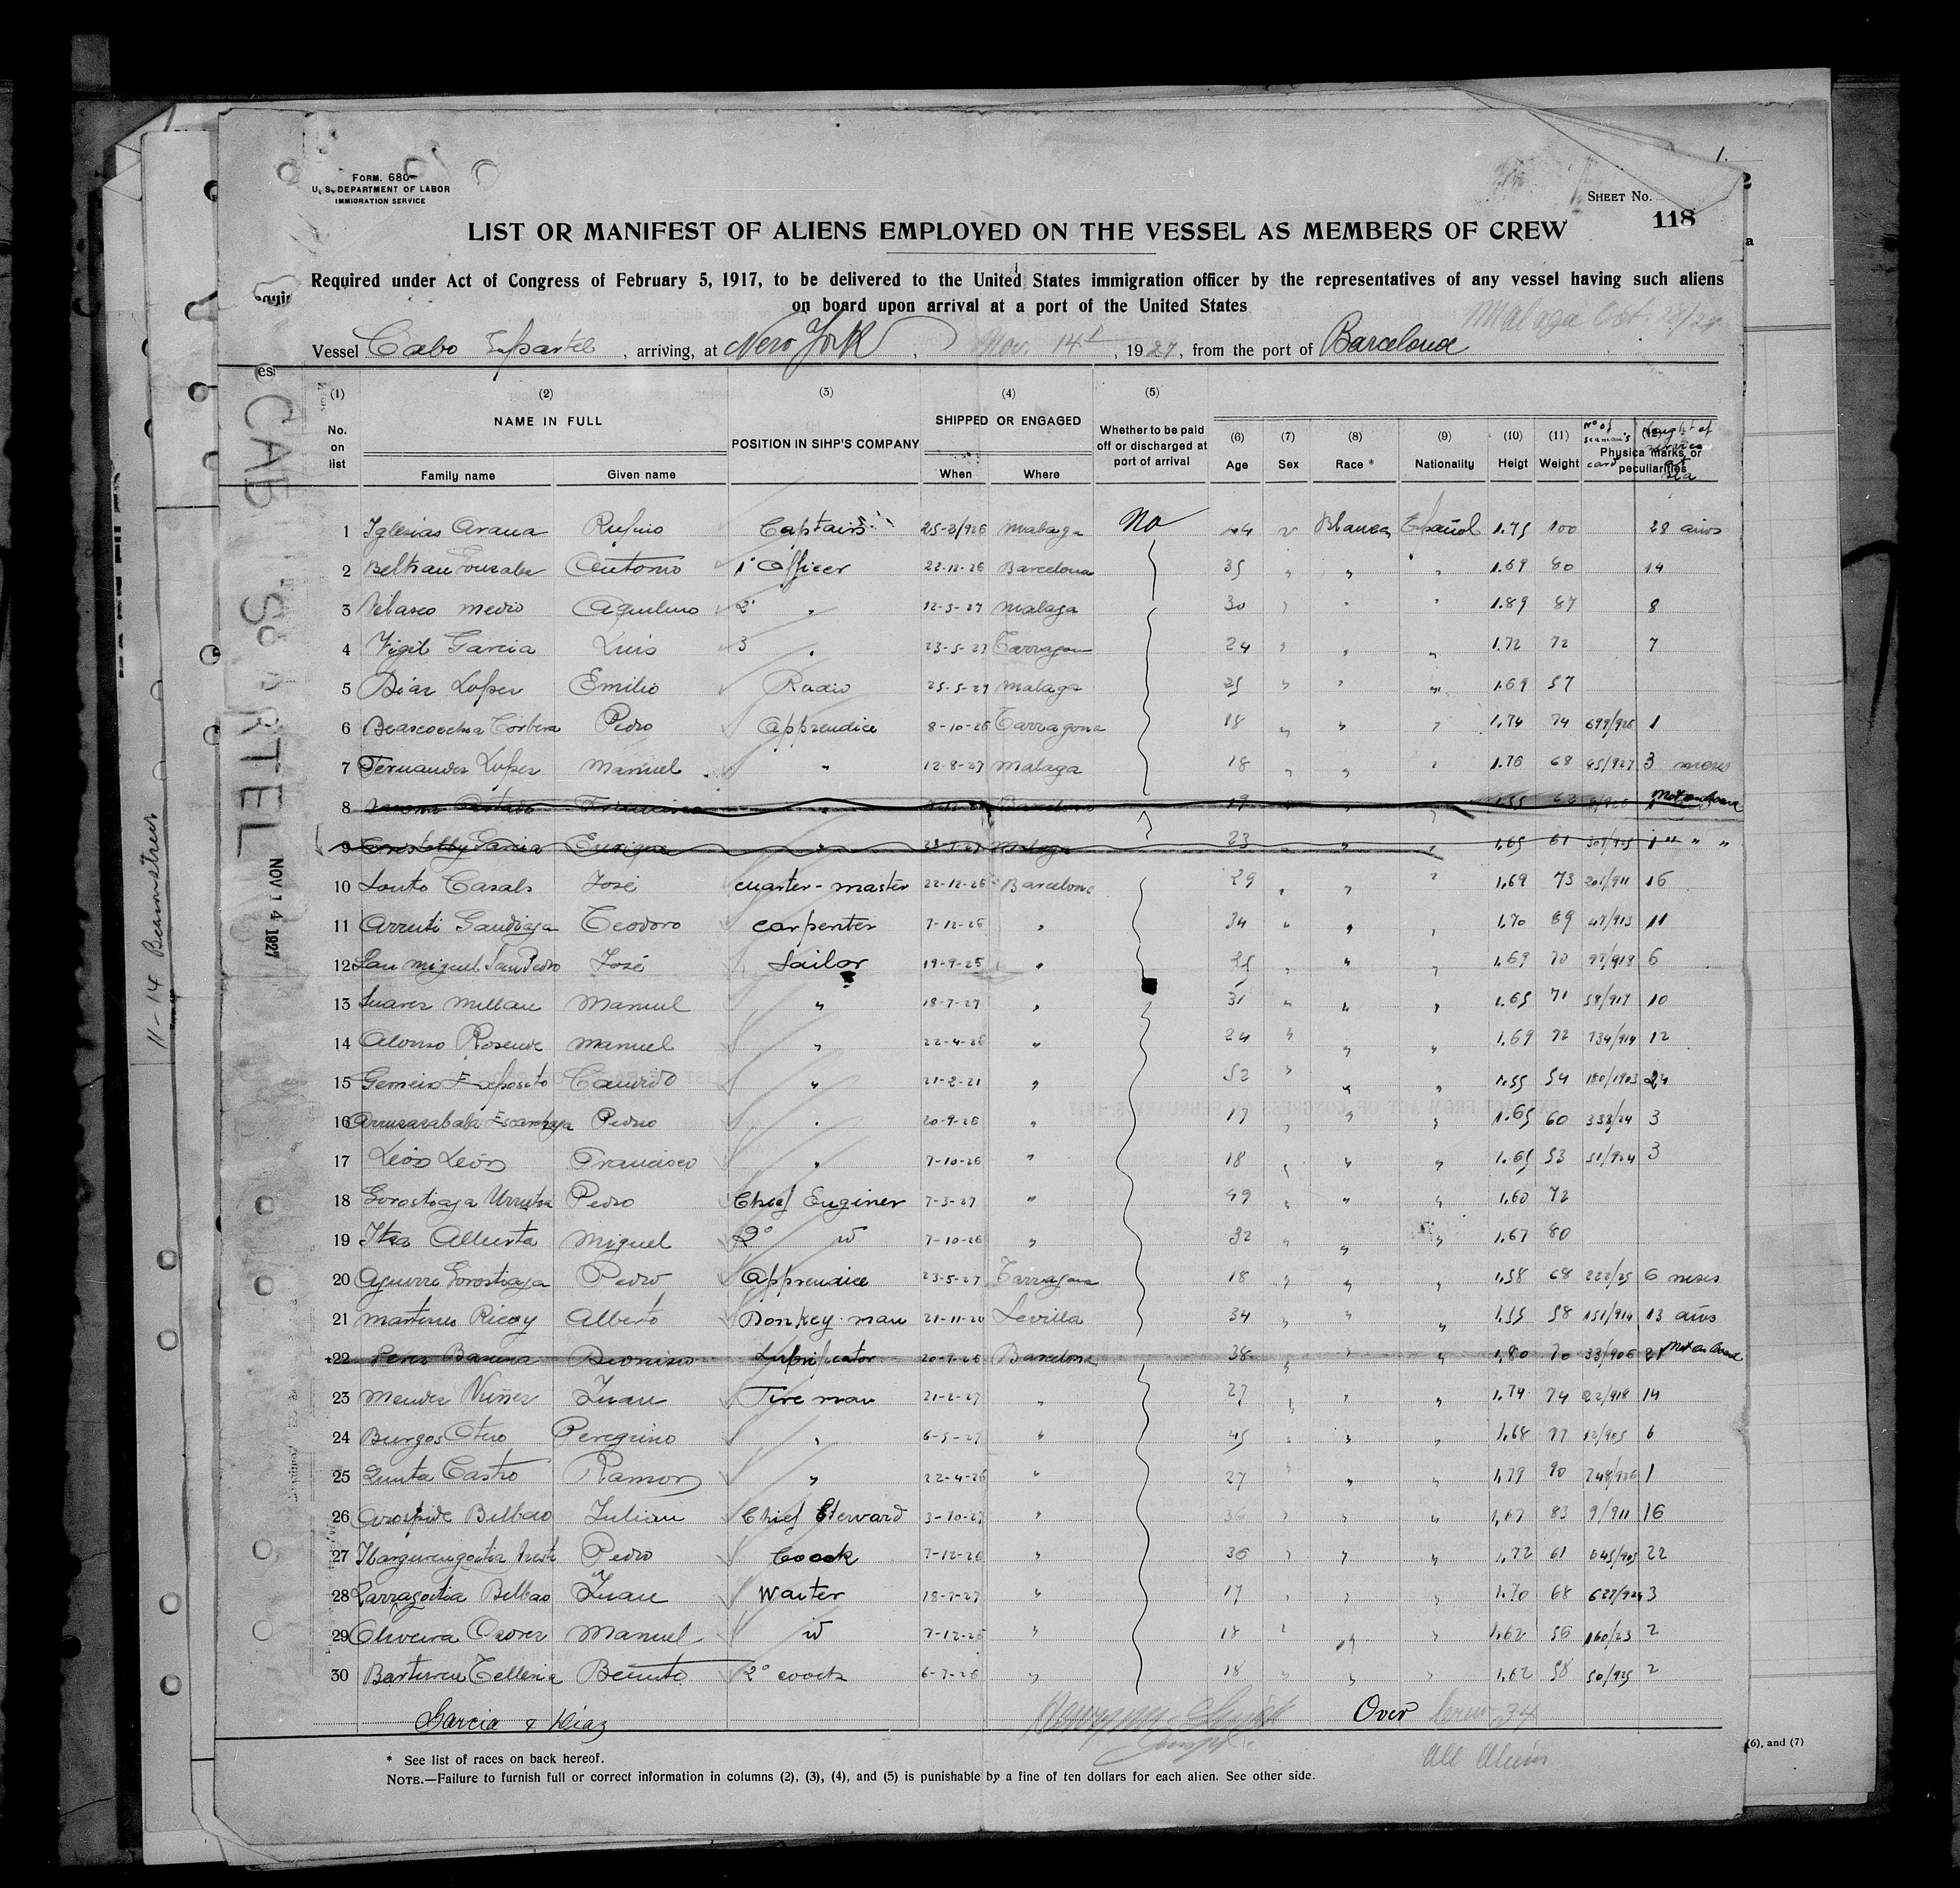 FORM. 680
U. S. DEPARTMENT OF LABOR
IMMIGRATION SERVICE
SHEET No.
118
LIST OR MANIFEST OF ALIENS EMPLOYED ON THE VESSEL AS MEMBERS OF CREW
Required under Act of Congress of February 5, 1917, to be delivered to the United States immigration officer by the representatives of any vessel having such aliens
on board upon arrival at a port of the United States
Malaga Oct. 28/27
Vessel Cabo Espartel, arriving, at New York, Nov. 14th, 1927, from the port of Barcelona
(1) (2) (3) (4) (5) (6) (7) (8) (9) (10) (11) (12)
No. on list NAME IN FULL Family name Given name POSITION IN SIHP'S COMPANY SHIPPED OR ENGAGED When Where Whether to be paid off or discharged at port of arrival Age Sex Race * Nationality Heigt Weight No of seaman's card Physica marks or peculiarities
1 Iglesias Arana Rufino Captain 25-2/926 Malaga No 44 v Blanca Español 1.75 100 28 años
2 Beltran Gonzalez Antonio 1° Officer 22-12-26 Barcelona 35 " " " 1.69 80 14
3 Velasco Medio Aquilino 2° " 12-3-27 Malaga 30 " " " 1.89 87 8
4 Vigil Garcia Luis 3 " 23-5-27 Tarragona 24 " " " 1.72 72 7
5 Diaz Lopez Emilio Radio 25-5-27 Malaga 25 " " " 1.69 57
6 Beascoechea Corbera Pedro Apprendice 8-10-26 Tarragona 18 " " " 1.74 74 699/926 1
7 Fernandez Lopez Manuel " 12-8-27 Malaga 18 " " " 1.76 68 45/927 3 meses
8 Francisco " Barcelona 19 " " " 1.55 63 Not on board
9 Garcia Enrique " Malaga 23 " " " 1,65 61 1 " "
10 Souto Casals José cuarter-master 22-12-26 Barcelona 29 " " " 1,69 73 201/911 16
11 Arruti Gandiaga Teodoro carpenter 7-12-26 " 34 " " " 1,70 89 47/913 11
12 San Miguel San Pedro José Sailor 19-9-25 " 25 " " " 1.69 70 97/918 6
13 Suarez Millan Manuel " 18-7-27 " 31 " " " 1.65 71 59/917 10
14 Alonso Rosende Manuel " 22-4-26 " 24 " " " 1,69 72 734/914 12
15 Exposito " 21-2-21 " 52 " " " 1.55 54 180/1903 24
16 Pedro " 20-9-26 " 17 " " " 1.65 60 333/24 3
17 León León Francisco " 7-10-26 " 18 " " " 1.65 53 51/924 3
18 Gorostiaga Urrutia Pedro Chief Enginer 7-3-27 " 49 " " " 1,60 72
19 Miguel 2° id 7-10-26 " 32 " " " 1,67 80
20 Aguirre Gorostiaga Pedro Apprendice 23-5-27 Tarragona 18 " " " 1,58 68 222/25 6 meses
21 Martinez Ricoy Alberto Donkey-man 21-11-20 Sevilla 34 " " " 1,55 58 151/914 13 años
22 Perez Dionisio Lubrificator 20-7-26 Barcelona 38 " " " 1,80 70 33/906 21 Not on board
23 Mendez Nuñez Juan Fire man 21-2-27 " 27 " " " 1.74 74 22/918 14
24 Burgos Otero Peregrino " 6-5-27 " 45 " " " 1,68 77 12/905 6
25 Castro Ramon " 22-4-26 " 27 " " " 1,79 90 748/926 1
26 Arospide Bilbao Julian Chief Steward 3-10-27 " 36 " " " 1,67 83 9/911 16
27 Ibarguengoitia Pedro Coock 7-12-26 " 36 " " " 1,72 61 645/905 22
28 Larragoitia Bilbao Juan Waiter 18-7-27 " 17 " " " 1.70 68 627/924 3
29 Oliveira Manuel id 7-12-26 " 18 " " " 1,62 56 160/25 2
30 Barturen Telleria Benito 2° coock 6-7-26 " 18 " " " 1,62 58 50/925 2
Garcia & Diaz
Over Crew 34
All Aliens
* See list of races on back hereof.
NOTE.—Failure to furnish full or correct information in columns (2), (3), (4), and (5) is punishable by a fine of ten dollars for each alien. See other side.
(6), and (7)
NOV 14 1927
11-14 Beaverstreet